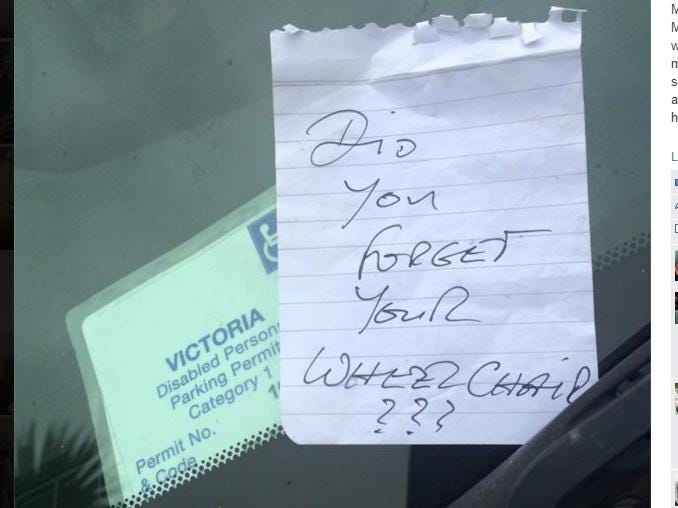 DID
YOU
FORGET
YOUR
WHEELCHAIR
???
VICTORIA
Disabled Person
Parking Permit
Category 1
Permit No.
& Code